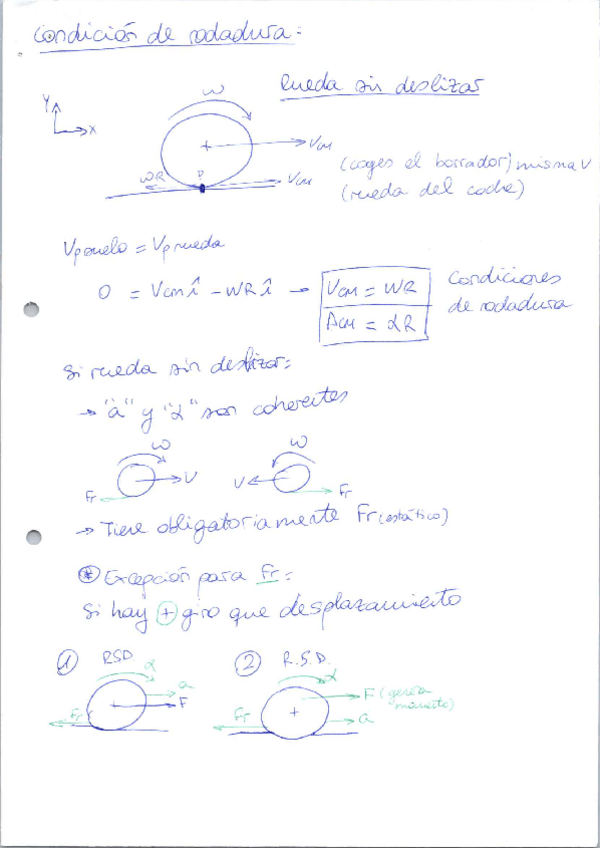 Condición de rodadura:
Rueda sin deslizar
Y
X
ω
VCM
P
ωR
VCM
(coges el borrador) misma v
(rueda del coche)
Vpsuelo = Vprueda
0 = VCM î - ωR î → VCM = ωR
ACM = αR
Condiciones
de rodadura
Si rueda sin deslizar:
→ "a" y "α" son coherentes
ω
V
Fr
ω
V
Fr
→ Tiene obligatoriamente Fr (estático)
* Excepción para Fr:
Si hay + giro que desplazamiento
1 RSD
α
a
F
Fr
2 R.S.D.
α
F (genera
momento)
a
Fr